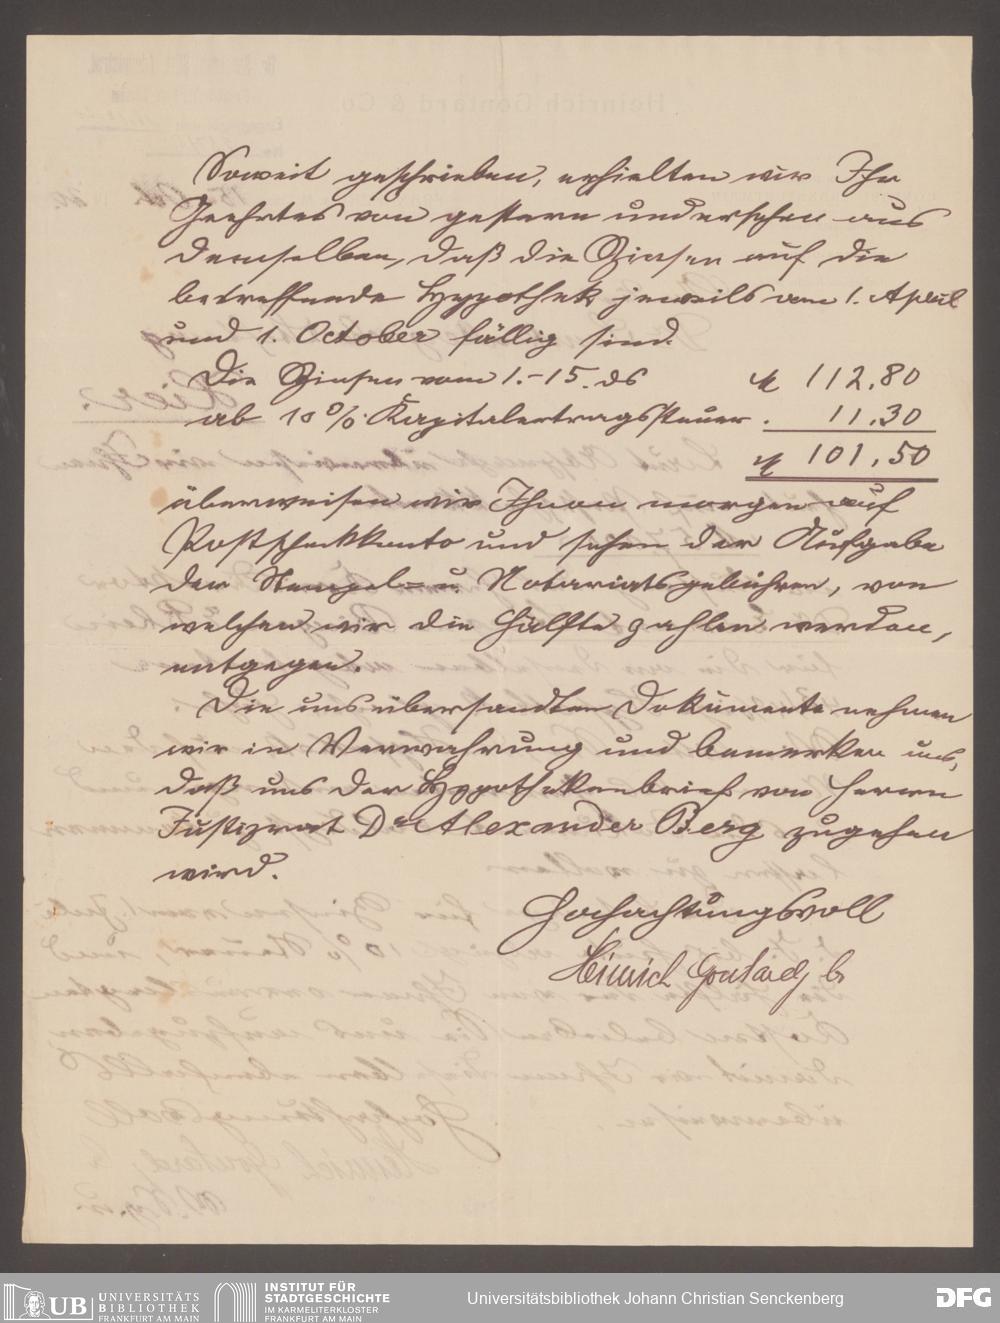 Soweit geschrieben, erhielten wir Ihr
Geehrtes von gestern und ersehen aus
demselben, daß die Zinsen auf die
betreffende Hypothek jeweils am 1. April
und 1. October fällig sind.
Die Zinsen vom 1.-15. ds ℳ 112.80
ab 10% Kapitalertragssteuer . 11.30
ℳ 101.50
überweisen wir Ihnen morgen auf
Postscheckkonto und sehen der Aufgabe
der Stempel- u. Notariatsgebühren, von
welchen wir die Hälfte zahlen werden,
entgegen.
Die uns übersandten Dokumente nehmen
wir in Verwahrung und bemerken uns,
daß uns der Hypothekenbrief von Herrn
Justizrat Dr Alexander Berg zugehen
wird.
Hochachtungsvoll
Heinrich Gontard & Co
UB UNIVERSITÄTS
BIBLIOTHEK
FRANKFURT AM MAIN
INSTITUT FÜR
STADTGESCHICHTE
IM KARMELITERKLOSTER
FRANKFURT AM MAIN
Universitätsbibliothek Johann Christian Senckenberg
DFG